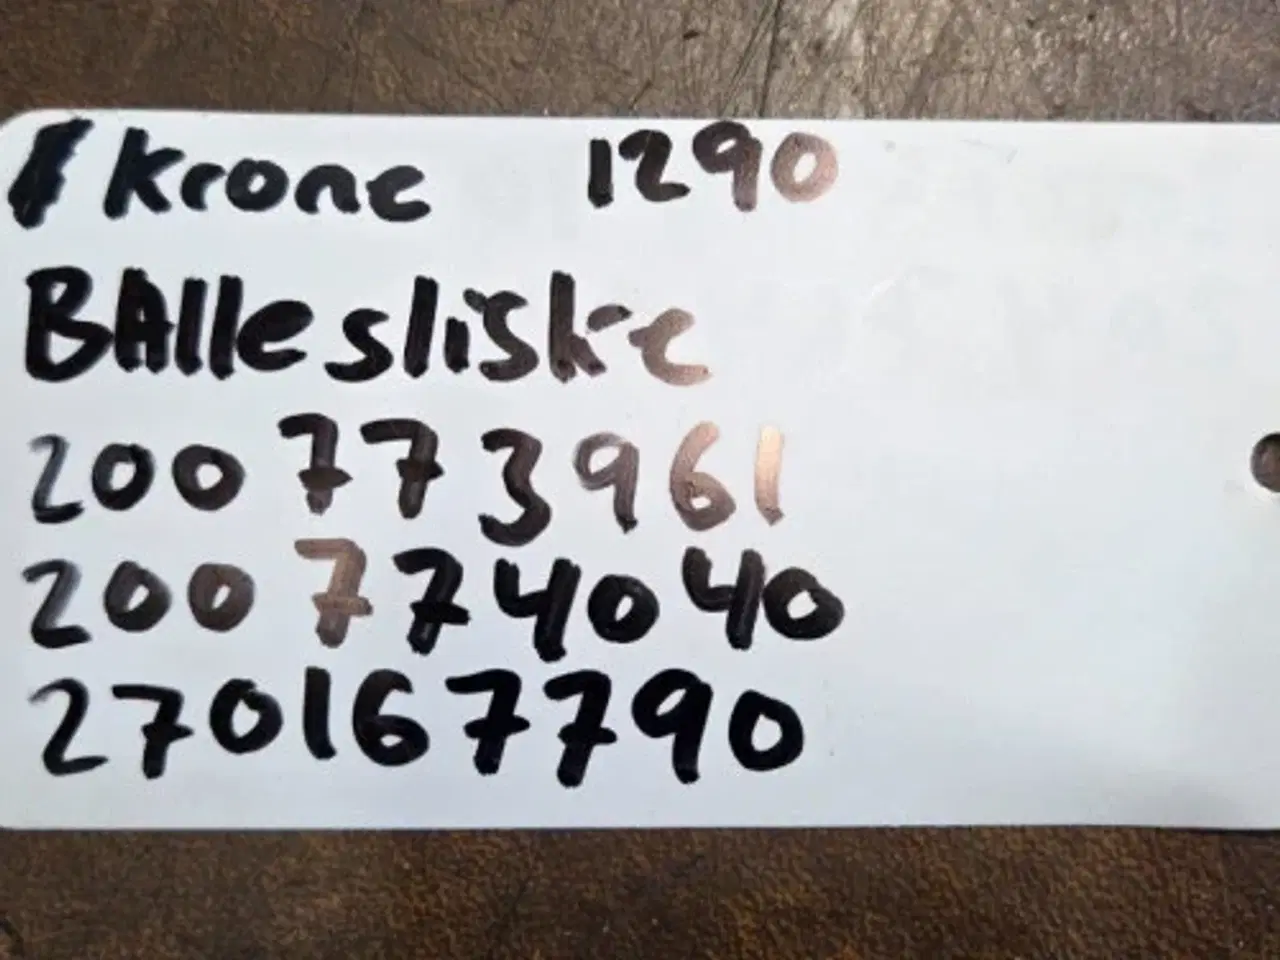 Krone 1290
BAlle sliske
200773961
200774040
270167790